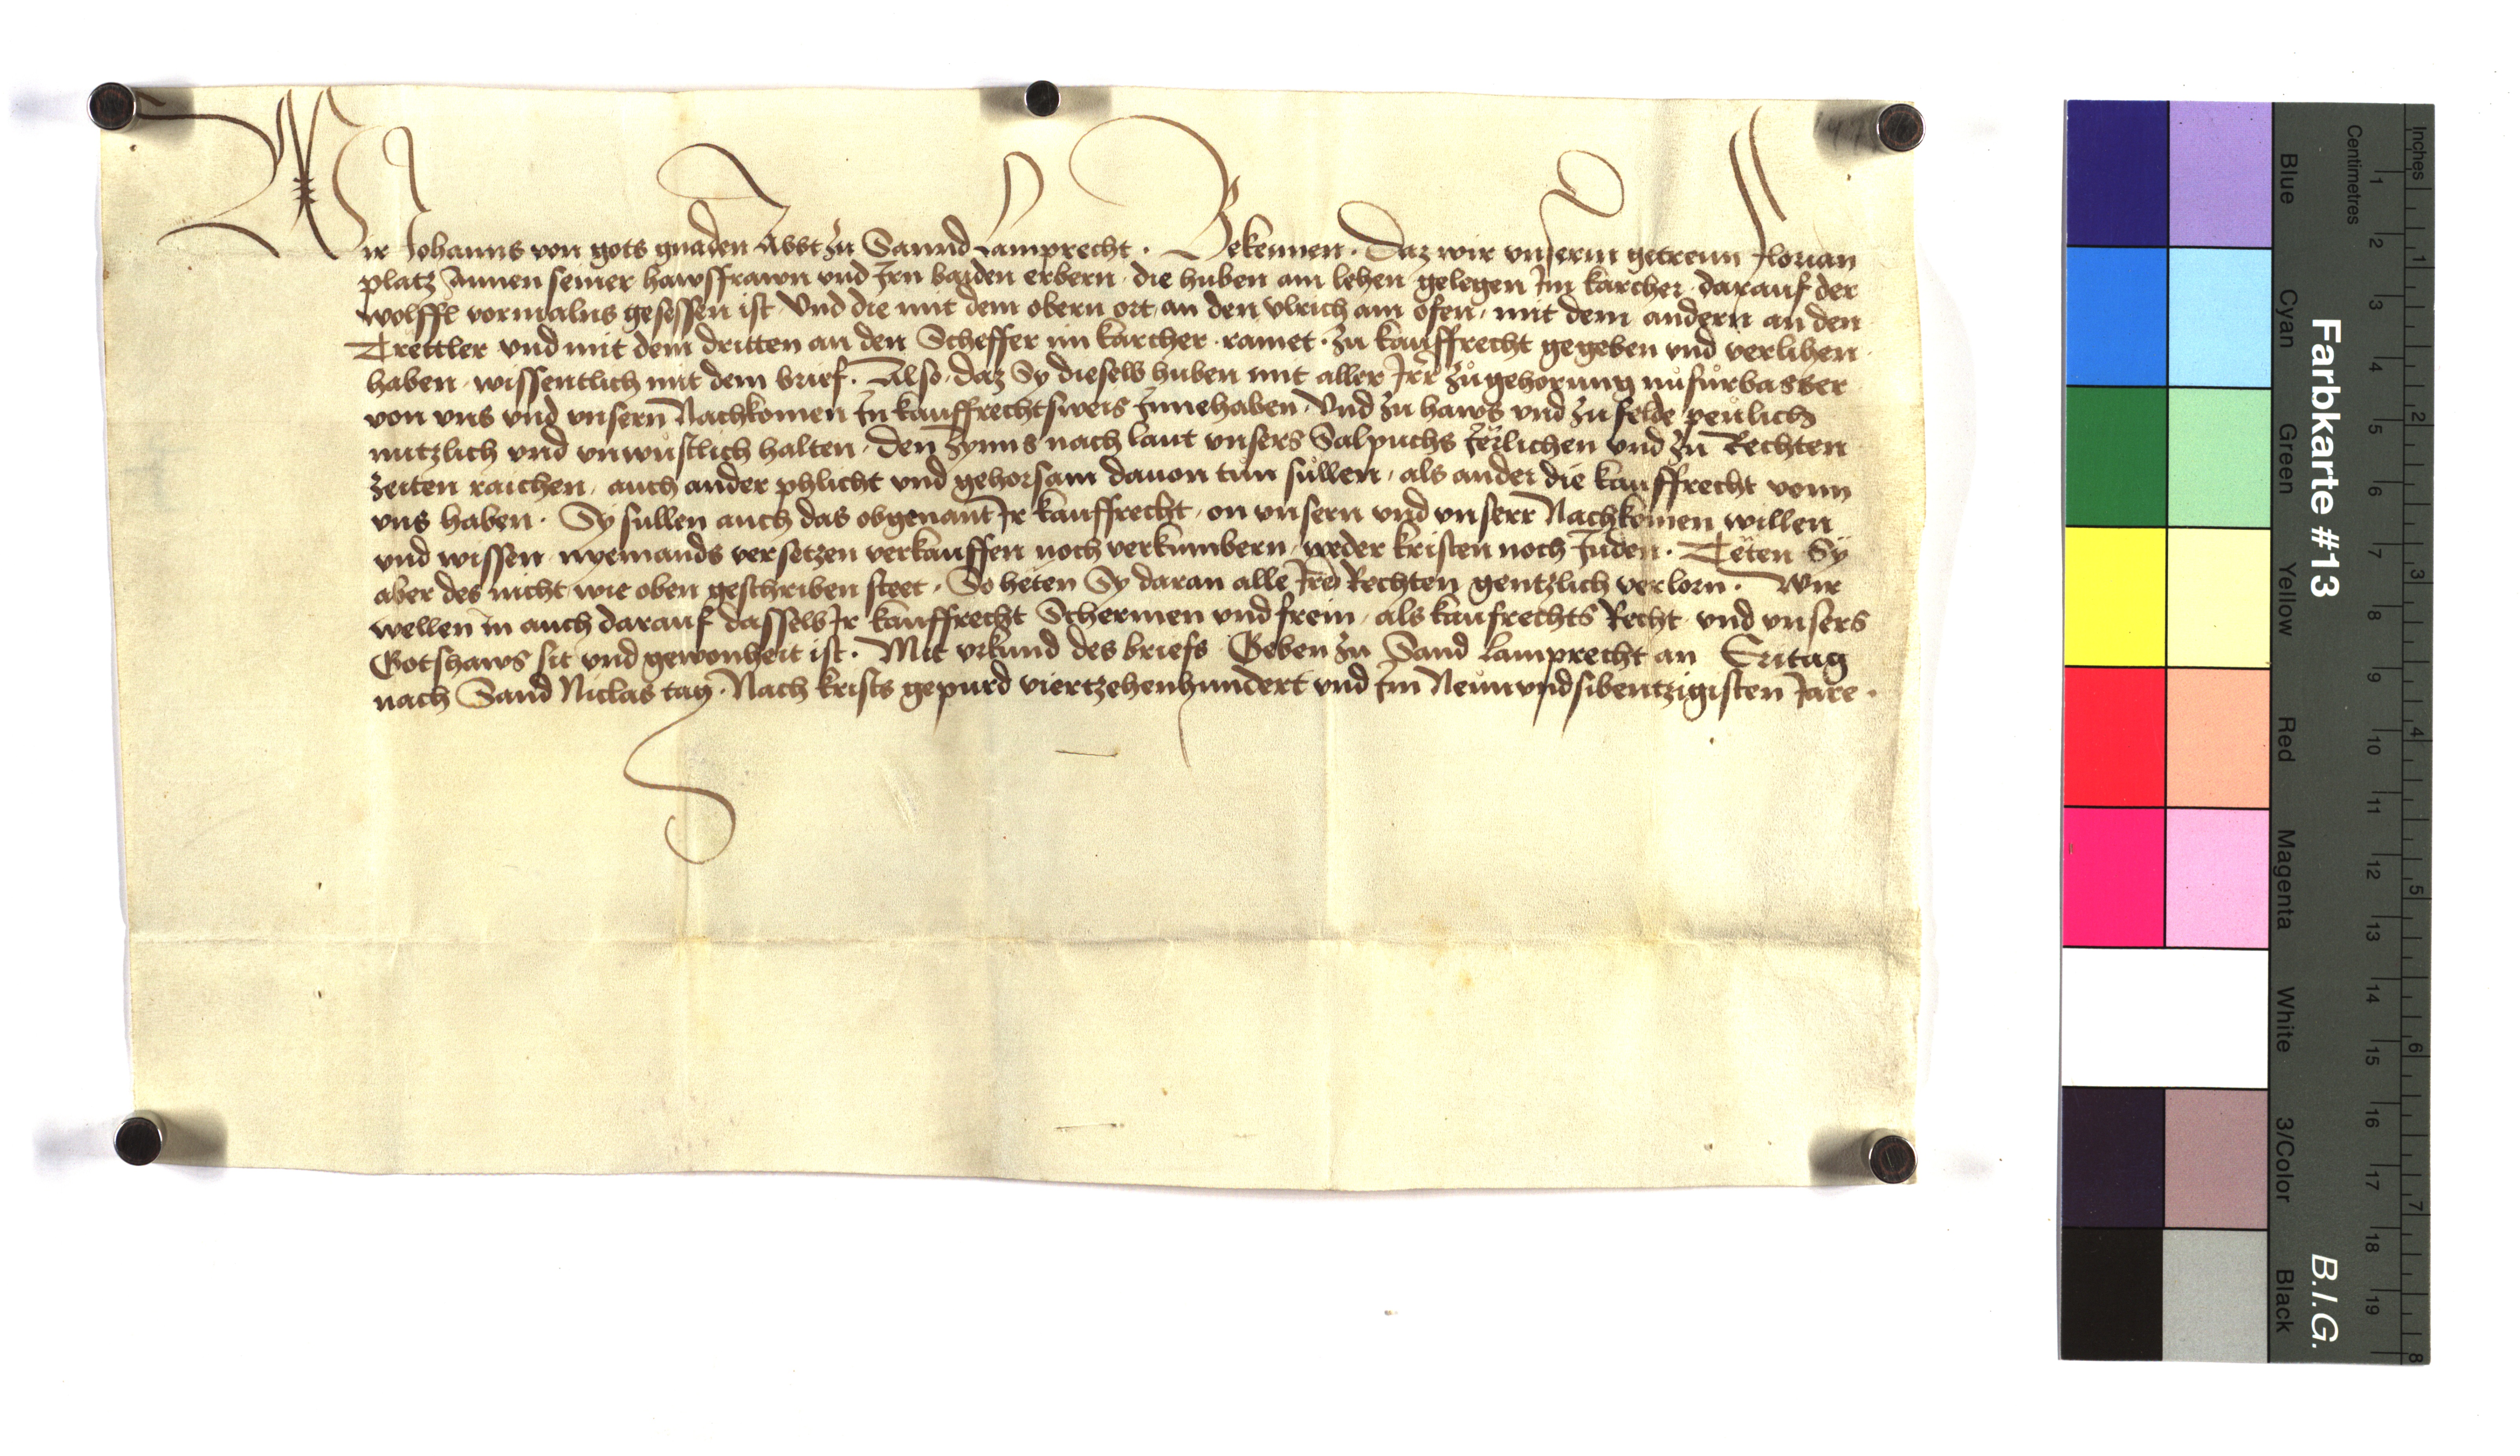 Wir Johanns von gots gnaden Abbt zu Sannd Lamprecht · Bekennen · Daz wir vnserm getreun Florian
platz Annen seiner hawsfrawn vnd Jrn baiden erbern · die huben am lehen gelegen Jm karcher · darauf der
wolffl vormalns gesessen ist · Vnd die mit dem obern ort an den vlrich am ofen, mit dem andern an den
Trettler vnd mit dem dritten an den Scheffer im karcher · ramet · zu kauffrecht gegeben vnd verlihen ·
haben · wissentlich mit dem brief. Also · daz Sy dieselb huben mit aller Jrr zůgehorung nu fůrbasser
von vns vnd vnsern Nachkomen Jn kauffrechtsweis Jnnehaben · Vnd zu haws vnd zu felde peulich
nutzlich vnd vnwůstlich halten · den Zynns nach laut vnsers Salpuchs Jerlichen vnd zu Rechten
zeiten raichen, auch ander phlicht vnd gehorsam dauon tun sůllen, als ander die kauffrecht vonn
vns haben · Sy sullen auch das obgenant Jr kauffrecht, on vnsern vnd vnserr Nachkomen willen
vnd wissen nyemands versetzen verkauffen noch verkumbern, weder kristen noch Juden · Tëten Sÿ
aber des nicht wie oben geschriben steet · So heten Sy daran alle Jre Rechten gentzlich verlorn · Wir
wellen in auch darauf dasselb Jr kauffrecht Schermen vnd frein, als kaufrechts Recht vnd vnsers
Gotshaws sit vnd gewonheit ist · Mit vrkund des briefs Geben zu Sand Lamprecht an Eritag
nach Sand Niclas tag · Nach krists gepurd viertzehenhundert vnd Jm Neunvndsibentzigisten Jare ·
Farbkarte #13
B.I.G.
Centimetres
Inches
1 2 3 4 5 6 7 8 9 10 11 12 13 14 15 16 17 18 19
1 2 3 4 5 6 7 8
Blue
Cyan
Green
Yellow
Red
Magenta
White
3/Color
Black